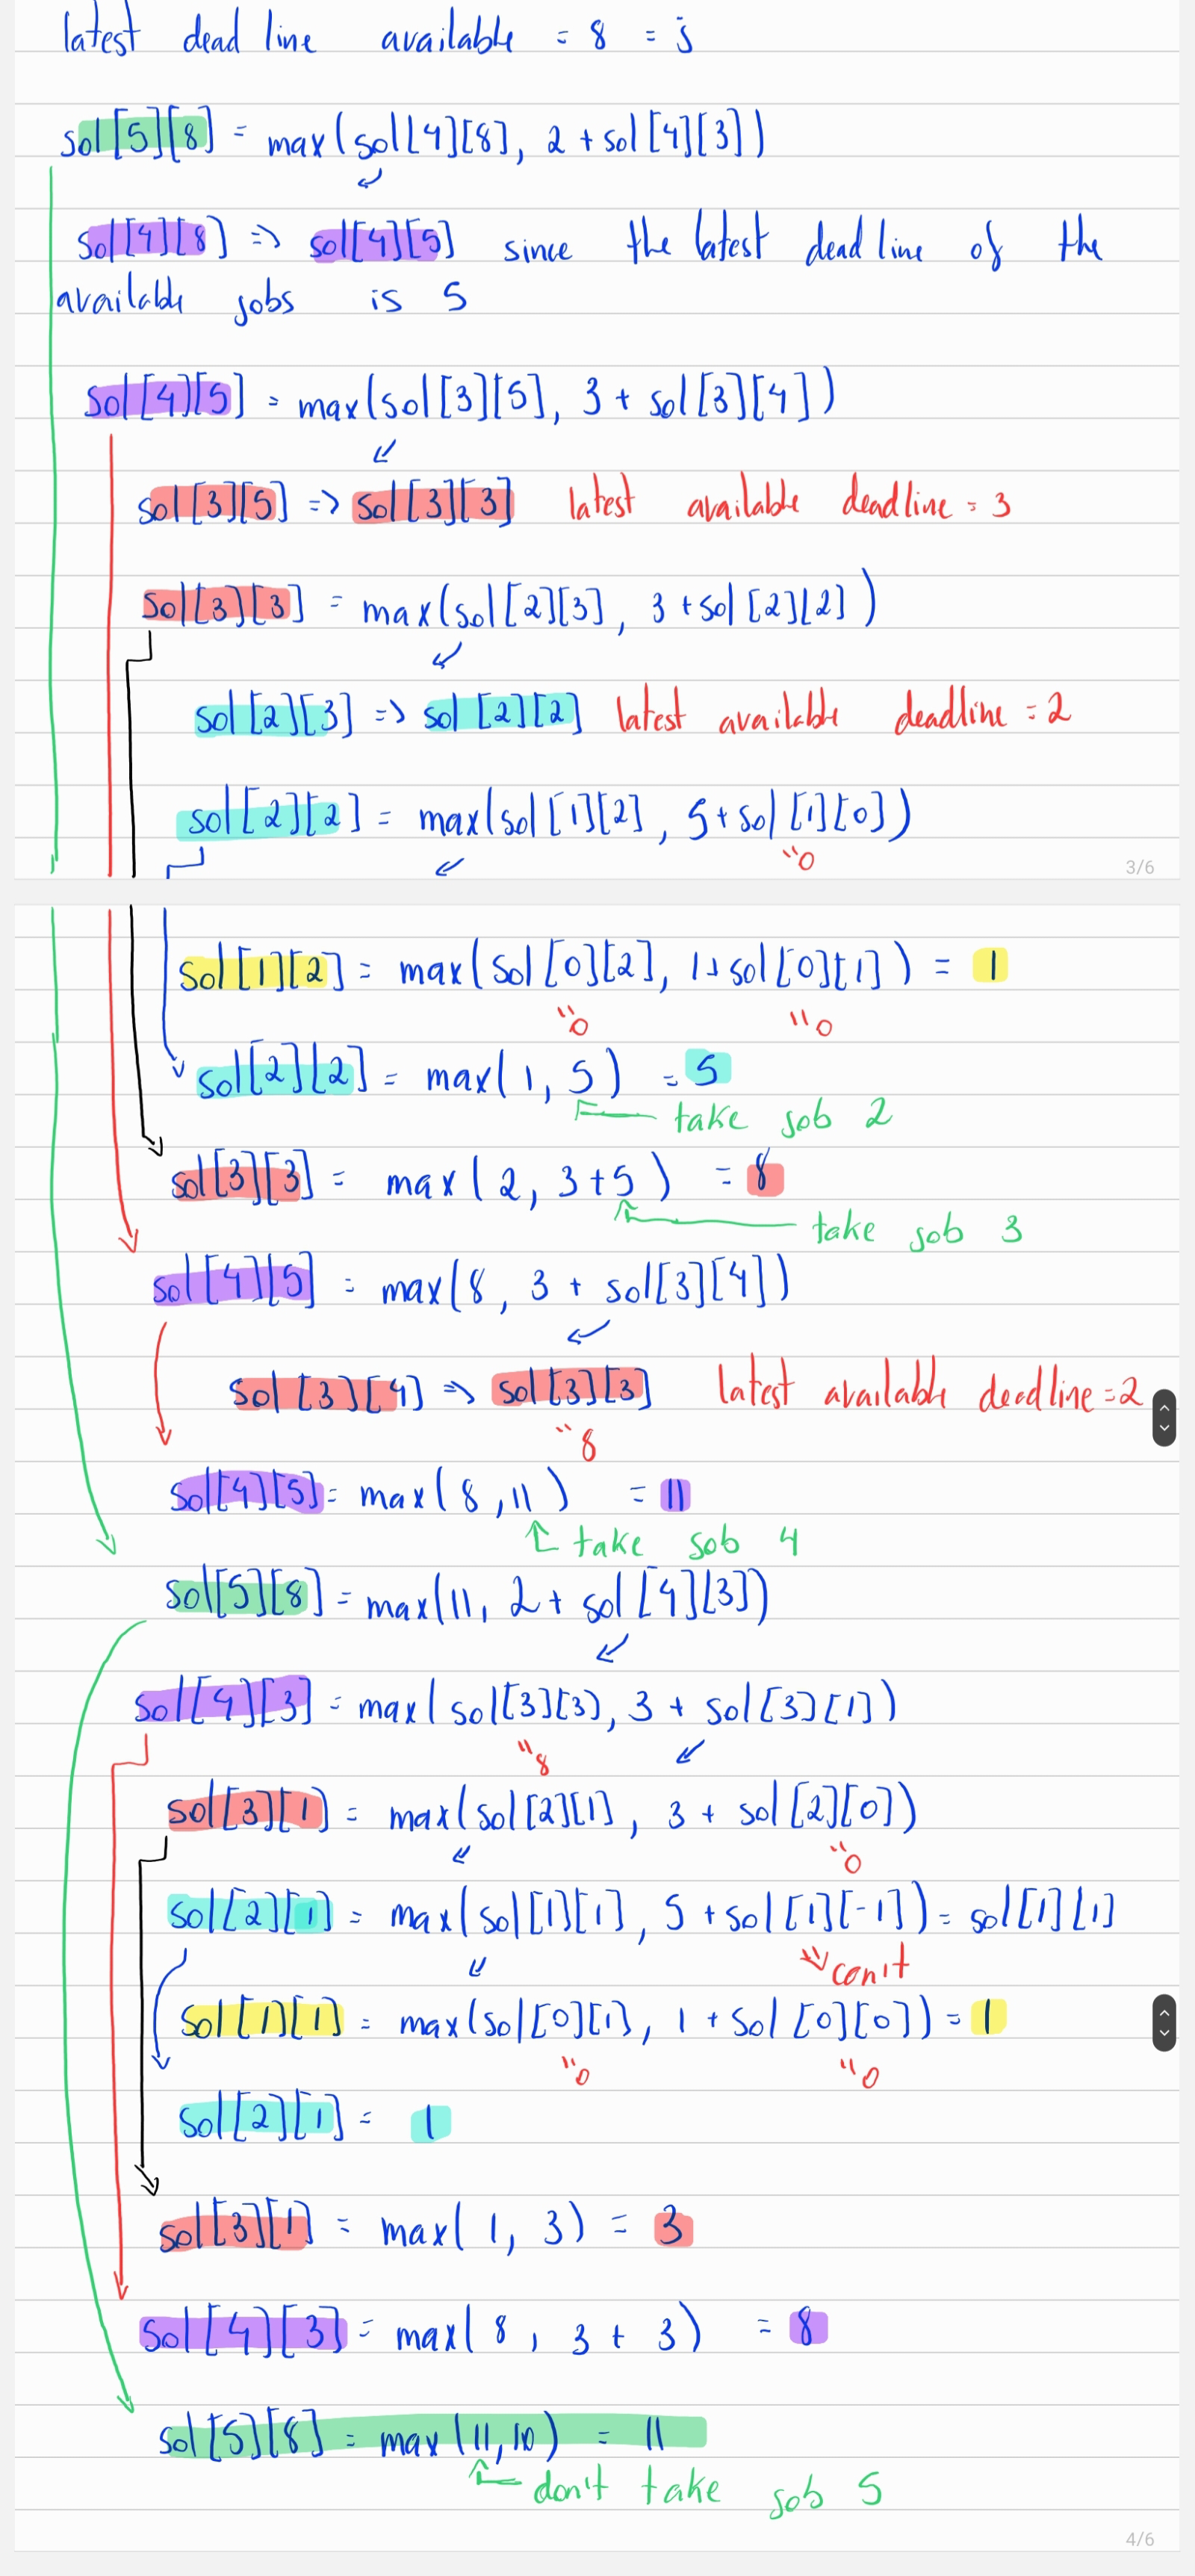 latest dead line available = 8 = j
sol[5][8] = max(sol[4][8], 2 + sol[4][3])
sol[4][8] => sol[4][5] since the latest dead line of the
available jobs is 5
sol[4][5] = max(sol[3][5], 3 + sol[3][4])
sol[3][5] => sol[3][3] latest available deadline = 3
sol[3][3] = max(sol[2][3], 3 + sol[2][2])
sol[2][3] => sol[2][2] latest available deadline = 2
sol[2][2] = max(sol[1][2], 5 + sol[1][0])
"0
3/6
sol[1][2] = max(sol[0][2], 1 + sol[0][1]) = 1
"0 "0
sol[2][2] = max(1, 5) = 5
take job 2
sol[3][3] = max(2, 3+5) = 8
take job 3
sol[4][5] = max(8, 3 + sol[3][4])
sol[3][4] => sol[3][3] latest available deadline = 2
"8
sol[4][5] = max(8, 11) = 11
take job 4
sol[5][8] = max(11, 2 + sol[4][3])
sol[4][3] = max(sol[3][3], 3 + sol[3][1])
"8
sol[3][1] = max(sol[2][1], 3 + sol[2][0])
"0
sol[2][1] = max(sol[1][1], 5 + sol[1][-1]) = sol[1][1]
can't
sol[1][1] = max(sol[0][1], 1 + sol[0][0]) = 1
"0 "0
sol[2][1] = 1
sol[3][1] = max(1, 3) = 3
sol[4][3] = max(8, 3 + 3) = 8
sol[5][8] = max(11, 10) = 11
don't take job 5
4/6